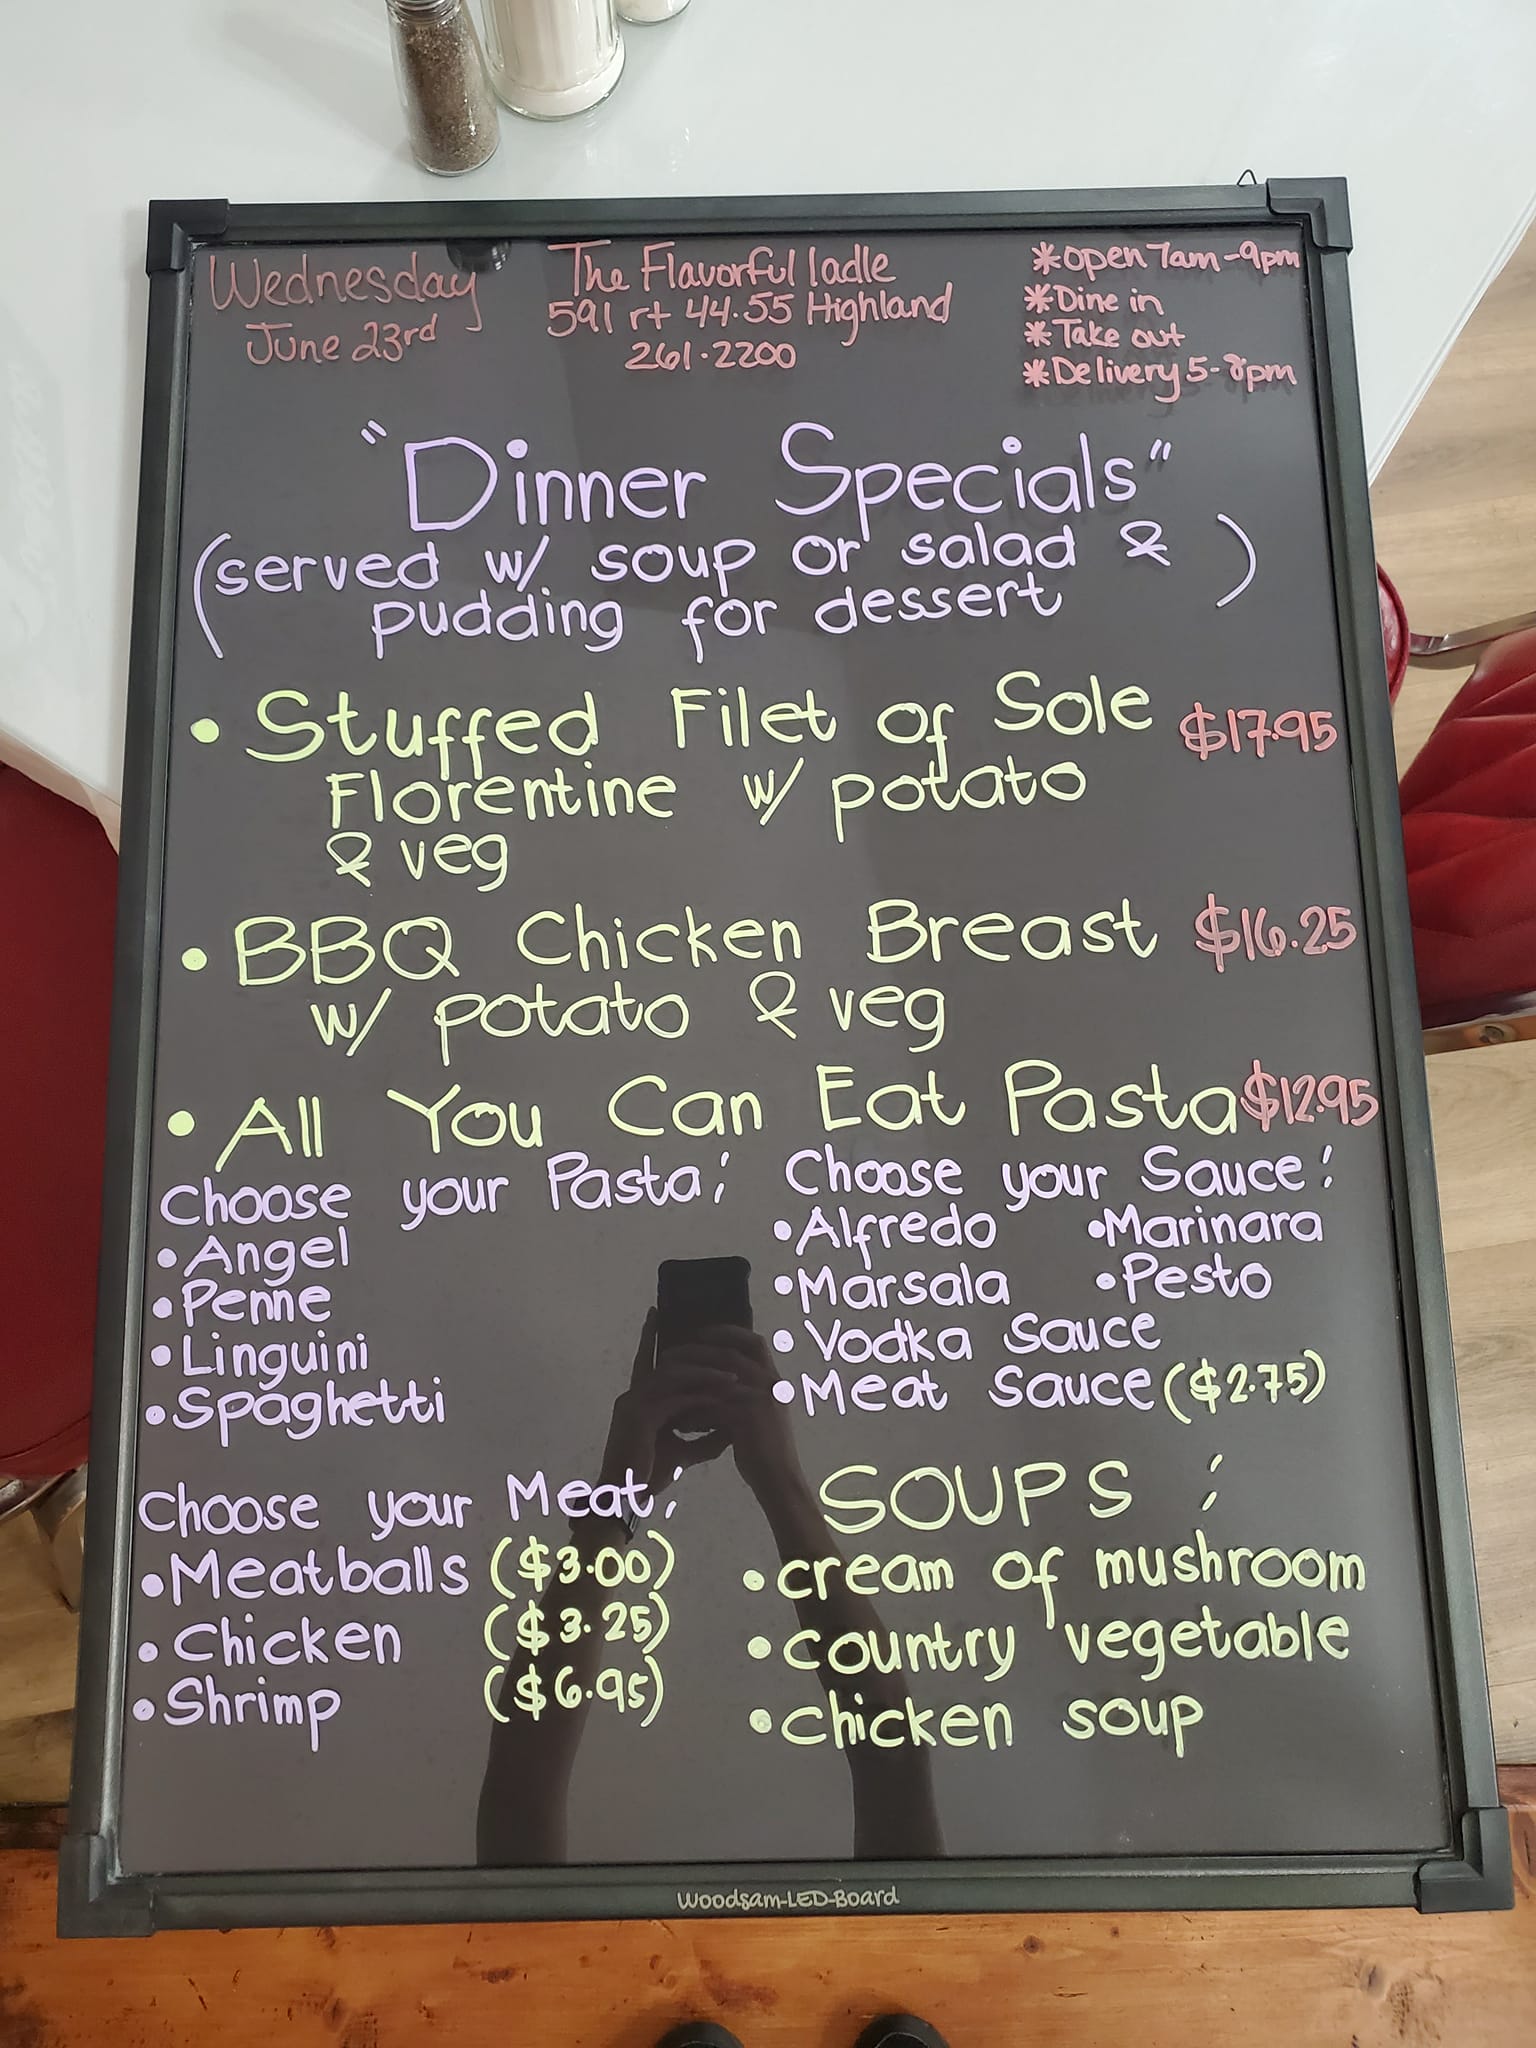 Wednesday
June 23rd
The Flavorful ladle
591 rt 44.55 Highland
261.2200
*open 7am-9pm
*Dine in
*Take out
*Delivery 5-8pm
"Dinner Specials"
(served w/ soup or salad & )
pudding for dessert
• Stuffed Filet of Sole $17.95
Florentine w/ potato
& veg
• BBQ Chicken Breast $16.25
w/ potato & veg
• All You Can Eat Pasta $12.95
Choose your Pasta:
• Angel
• Penne
• Linguini
• Spaghetti
Choose your Sauce:
• Alfredo • Marinara
• Marsala • Pesto
• Vodka Sauce
• Meat Sauce ($2.75)
Choose your Meat:
• Meatballs ($3.00)
• Chicken ($3.25)
• Shrimp ($6.95)
SOUPS:
• cream of mushroom
• country vegetable
• chicken soup
Woodsam-LED-Board